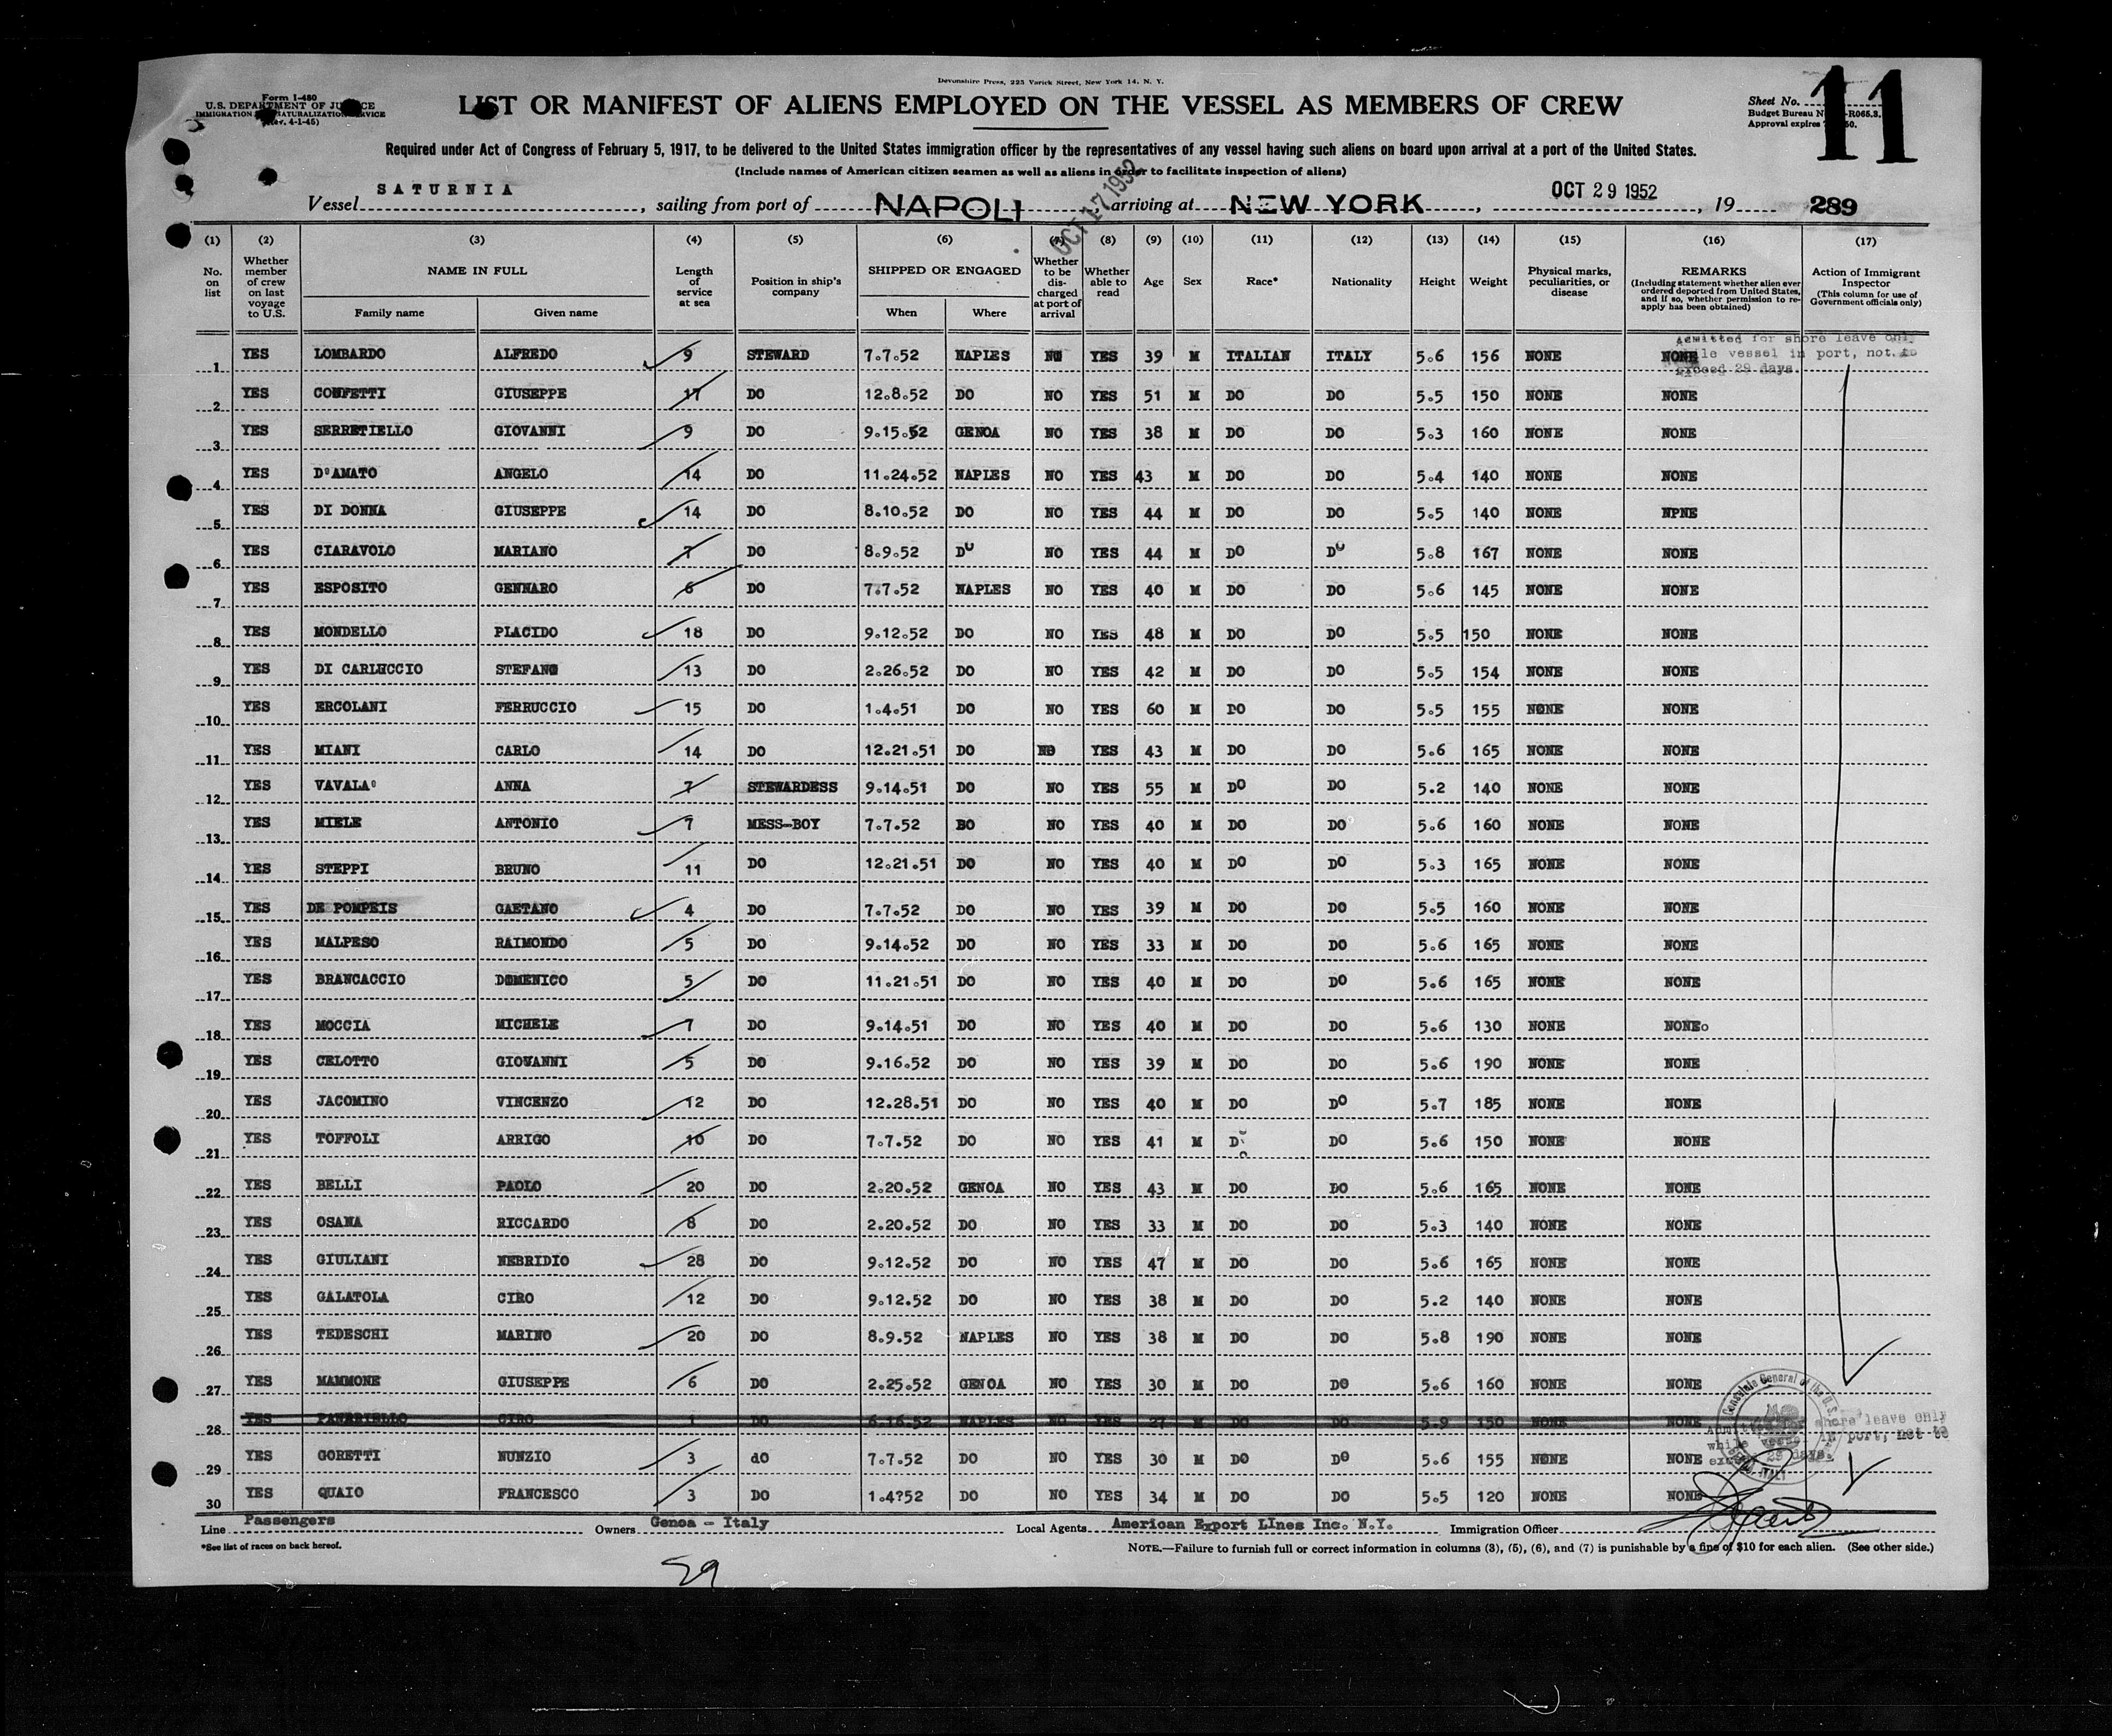 Devonshire Press, 225 Varick Street, New York 14, N. Y.
Form I-480
U.S. DEPARTMENT OF JUSTICE
IMMIGRATION NATURALIZATION SERVICE
(Rev. 4-1-45)
LIST OR MANIFEST OF ALIENS EMPLOYED ON THE VESSEL AS MEMBERS OF CREW
Sheet No. 11
Budget Bureau No. -R065.3.
Approval expires 50.
Required under Act of Congress of February 5, 1917, to be delivered to the United States immigration officer by the representatives of any vessel having such aliens on board upon arrival at a port of the United States.
(Include names of American citizen seamen as well as aliens in order to facilitate inspection of aliens)
Vessel SATURNIA, sailing from port of NAPOLI OCT 17 1952 arriving at NEW YORK, OCT 29 1952, 19 289
(1) (2) (3) (4) (5) (6) (7) (8) (9) (10) (11) (12) (13) (14) (15) (16) (17)
No. on list
Whether member of crew on last voyage to U.S.
NAME IN FULL
Family name Given name
Length of service at sea
Position in ship's company
SHIPPED OR ENGAGED
When Where
Whether to be discharged at port of arrival
Whether able to read
Age
Sex
Race*
Nationality
Height
Weight
Physical marks, peculiarities, or disease
REMARKS
(Including statement whether alien ever ordered deported from United States, and if so, whether permission to re-apply has been obtained)
Action of Immigrant Inspector
(This column for use of Government officials only)
Admitted for shore leave only
while vessel in port, not to
exceed 29 days.
1 YES LOMBARDO ALFREDO 9 STEWARD 7.7.52 NAPLES NO YES 39 M ITALIAN ITALY 5.6 156 NONE NONE
2 YES CONFETTI GIUSEPPE 17 DO 12.8.52 DO NO YES 51 M DO DO 5.5 150 NONE NONE
3 YES SERRETIELLO GIOVANNI 9 DO 9.15.52 GENOA NO YES 38 M DO DO 5.3 160 NONE NONE
4 YES D'AMATO ANGELO 14 DO 11.24.52 NAPLES NO YES 43 M DO DO 5.4 140 NONE NONE
5 YES DI DONNA GIUSEPPE 14 DO 8.10.52 DO NO YES 44 M DO DO 5.5 140 NONE NPNE
6 YES CIARAVOLO MARIANO 7 DO 8.9.52 DO NO YES 44 M DO DO 5.8 167 NONE NONE
7 YES ESPOSITO GENNARO 6 DO 7.7.52 NAPLES NO YES 40 M DO DO 5.6 145 NONE NONE
8 YES MONDELLO PLACIDO 18 DO 9.12.52 DO NO YES 48 M DO DO 5.5 150 NONE NONE
9 YES DI CARLUCCIO STEFANO 13 DO 2.26.52 DO NO YES 42 M DO DO 5.5 154 NONE NONE
10 YES ERCOLANI FERRUCCIO 15 DO 1.4.51 DO NO YES 60 M DO DO 5.5 155 NONE NONE
11 YES MIANI CARLO 14 DO 12.21.51 DO NO YES 43 M DO DO 5.6 165 NONE NONE
12 YES VAVALA' ANNA 7 STEWARDESS 9.14.51 DO NO YES 55 M DO DO 5.2 140 NONE NONE
13 YES MIELE ANTONIO 7 MESS-BOY 7.7.52 BO NO YES 40 M DO DO 5.6 160 NONE NONE
14 YES STEPPI BRUNO 11 DO 12.21.51 DO NO YES 40 M DO DO 5.3 165 NONE NONE
15 YES DE POMPEIS GAETANO 4 DO 7.7.52 DO NO YES 39 M DO DO 5.5 160 NONE NONE
16 YES MALPESO RAIMONDO 5 DO 9.14.52 DO NO YES 33 M DO DO 5.6 165 NONE NONE
17 YES BRANCACCIO DOMENICO 5 DO 11.21.51 DO NO YES 40 M DO DO 5.6 165 NONE NONE
18 YES MOCCIA MICHELE 7 DO 9.14.51 DO NO YES 40 M DO DO 5.6 130 NONE NONE.
19 YES CELOTTO GIOVANNI 5 DO 9.16.52 DO NO YES 39 M DO DO 5.6 190 NONE NONE
20 YES JACOMINO VINCENZO 12 DO 12.28.51 DO NO YES 40 M DO DO 5.7 185 NONE NONE
21 YES TOFFOLI ARRIGO 10 DO 7.7.52 DO NO YES 41 M DO DO 5.6 150 NONE NONE
22 YES BELLI PAOLO 20 DO 2.20.52 GENOA NO YES 43 M DO DO 5.6 165 NONE NONE
23 YES OSANA RICCARDO 8 DO 2.20.52 DO NO YES 33 M DO DO 5.3 140 NONE NONE
24 YES GIULIANI NEBRIDIO 28 DO 9.12.52 DO NO YES 47 M DO DO 5.6 165 NONE NONE
25 YES GALATOLA CIRO 12 DO 9.12.52 DO NO YES 38 M DO DO 5.2 140 NONE NONE
26 YES TEDESCHI MARINO 20 DO 8.9.52 NAPLES NO YES 38 M DO DO 5.8 190 NONE NONE
27 YES MAMMONE GIUSEPPE 6 DO 2.25.52 GENOA NO YES 30 M DO DO 5.6 160 NONE NONE
28 YES PANARIELLO CIRO 1 DO 6.16.52 NAPLES NO YES 27 M DO DO 5.9 150 NONE NONE
Admitted for shore leave only
while vessel in port, not to
exceed 29 days.
29 YES GORETTI NUNZIO 3 dO 7.7.52 DO NO YES 30 M DO DO 5.6 155 NONE NONE
30 YES QUAIO FRANCESCO 3 DO 1.4?52 DO NO YES 34 M DO DO 5.5 120 NONE NONE
Line Passengers Owners Genoa - Italy Local Agents American Export LInes Inc. N.Y. Immigration Officer
*See list of races on back hereof.
NOTE.—Failure to furnish full or correct information in columns (3), (5), (6), and (7) is punishable by a fine of $10 for each alien. (See other side.)
29